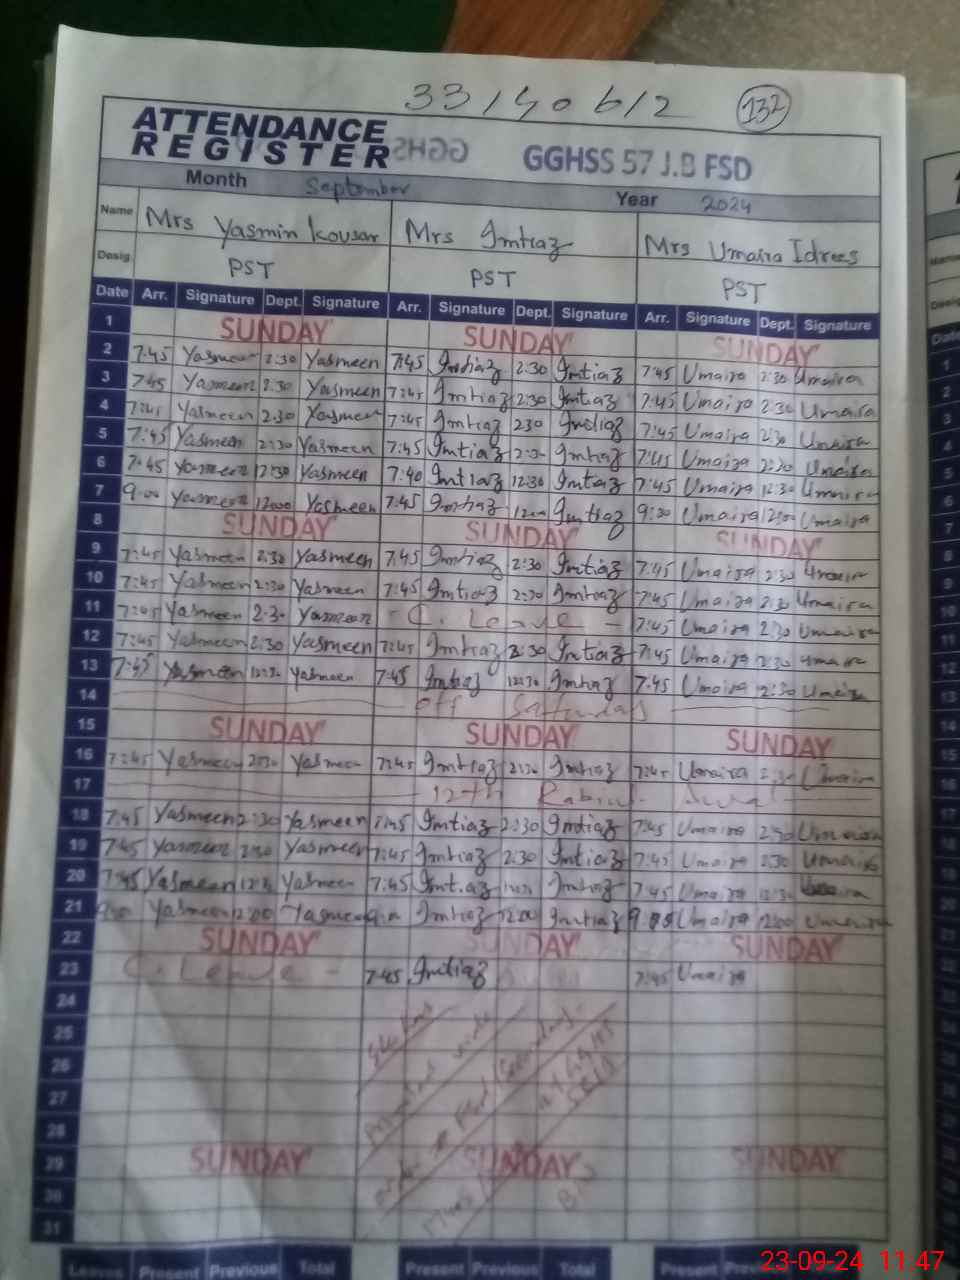 33140612 132
ATTENDANCE
REGISTER GGHSS GGHSS 57 J.B FSD
Month September Year 2024
Name Mrs Yasmin Kousar Mrs Imtiaz Mrs Umaira Idrees
Desig. PST PST PST
Date Arr. Signature Dept. Signature Arr. Signature Dept. Signature Arr. Signature Dept. Signature
1 SUNDAY SUNDAY SUNDAY
2 7:45 Yasmeen 2:30 Yasmeen 7:45 Imtiaz 2:30 Imtiaz 7:45 Umaira 2:30 Umaira
3 7:45 Yasmeen 2:30 Yasmeen 7:45 Imtiaz 2:30 Imtiaz 7:45 Umaira 2:30 Umaira
4 7:45 Yasmeen 2:30 Yasmeen 7:45 Imtiaz 2:30 Imtiaz 7:45 Umaira 2:30 Umaira
5 7:45 Yasmeen 2:30 Yasmeen 7:45 Imtiaz 2:30 Imtiaz 7:45 Umaira 2:30 Umaira
6 7:45 Yasmeen 12:30 Yasmeen 7:40 Imtiaz 12:30 Imtiaz 7:45 Umaira 12:30 Umaira
7 9:00 Yasmeen 12:00 Yasmeen 7:45 Imtiaz 12:00 Imtiaz 9:30 Umaira 12:00 Umaira
8 SUNDAY SUNDAY SUNDAY
9 7:45 Yasmeen 2:30 Yasmeen 7:45 Imtiaz 2:30 Imtiaz 7:45 Umaira 2:30 Umaira
10 7:45 Yasmeen 2:30 Yasmeen 7:45 Imtiaz 2:30 Imtiaz 7:45 Umaira 2:30 Umaira
11 7:45 Yasmeen 2:30 Yasmeen - C. Leave - 7:45 Umaira 2:30 Umaira
12 7:45 Yasmeen 2:30 Yasmeen 7:45 Imtiaz 2:30 Imtiaz 7:45 Umaira 2:30 Umaira
13 7:45 Yasmeen 12:30 Yasmeen 7:45 Imtiaz 12:30 Imtiaz 7:45 Umaira 12:30 Umaira
14 off Saturday
15 SUNDAY SUNDAY SUNDAY
16 7:45 Yasmeen 2:30 Yasmeen 7:45 Imtiaz 2:30 Imtiaz 7:45 Umaira 2:30 Umaira
17 12th Rabiul- Awal
18 7:45 Yasmeen 2:30 Yasmeen 7:45 Imtiaz 2:30 Imtiaz 7:45 Umaira 2:30 Umaira
19 7:45 Yasmeen 2:30 Yasmeen 7:45 Imtiaz 2:30 Imtiaz 7:45 Umaira 2:30 Umaira
20 7:45 Yasmeen 12:30 Yasmeen 7:45 Imtiaz Imtiaz 7:45 Umaira 12:30 Umaira
21 9:00 Yasmeen 12:00 Yasmeen Imtiaz 12:00 Imtiaz Umaira 12:00 Umaira
22 SUNDAY SUNDAY SUNDAY
23 C. Leave - 7:45 Imtiaz 7:45 Umaira
24
25
26
27
28
29 SUNDAY SUNDAY SUNDAY
30
31
Leaves Present Previous Total Present Previous Total Present
23-09-24 11:47